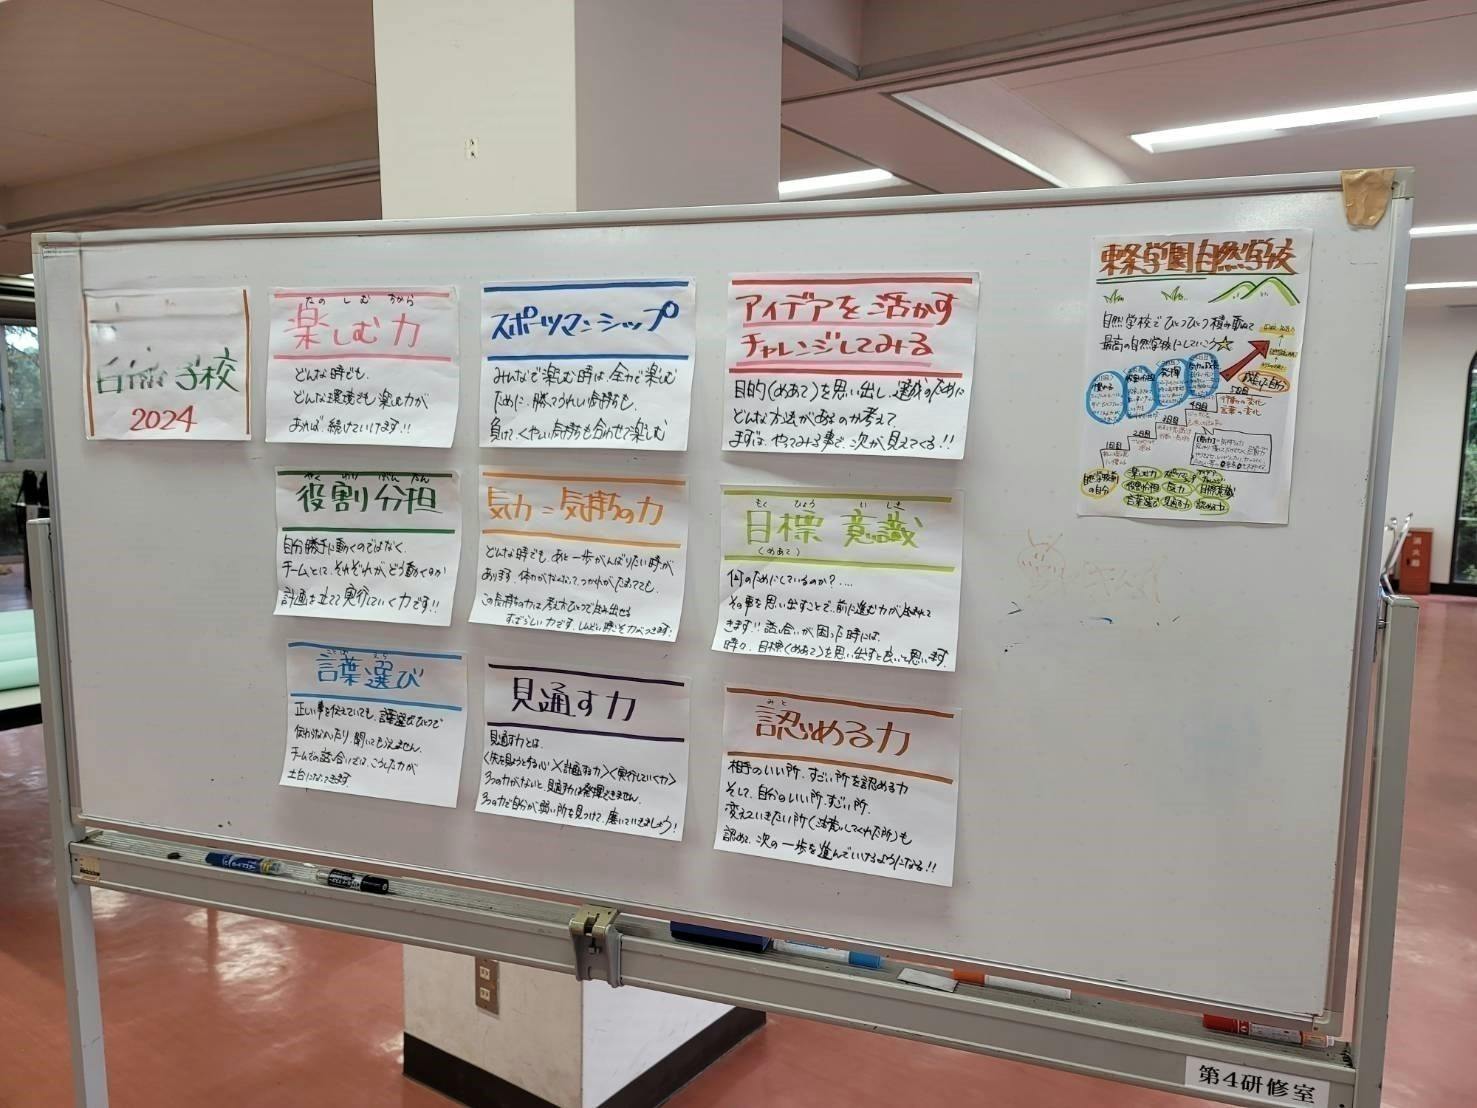 自然学校
2024
たのしむちから
楽しむ力
どんな時でも、
どんな環境でも楽しむ力が
あれば、続けていけます!!
スポーツマンシップ
みんなで楽しむ時は、全力で楽しむ
ために、勝てうれしい気持ちも、
負けて、くやしい気持ちも合わせて楽しむ
アイデアを活かす
チャレンジしてみる
目的(めあて)を思い出し、達成のために
どんな方法があるのか考えて
まずは、やってみる事で、次が見えてくる!!
やくわりぶんたん
役割分担
自分勝手に動くのではなく、
チームとして、それぞれが、どう動くのか
計画を立てて実行していく力です!!
気力=気持ちの力
どんな時でも、あと一歩がんばりたい時が
あります。体力がなくなって、つかれがたまってても、
この気持ちの力は、考え方ひとつで生み出せる
すばらしい力です。しんどい時こそ力がつきます!
もくひょういしき
目標意識
(めあて)
何のためにしているのか?....
その事を思い出すことで、前に進む力が生まれて
きます!!話し合いが困った時には、
時々、目標(めあて)を思い出すと良いと思います。
ことばえら
言葉選び
正しい事を伝えていても、言葉選びひとつで
伝わらなかったり、聞いてもらえません。
チームでの話し合いでは、こうした力が
土台になってきます
見通す力
見通す力とは、
<先を見ようとする心>×<計画する力>×<実行していく力>
3つの力がないと、見通す力は発揮できません。
3つの力で自分が弱い所を見つけて、磨いていきましょう!
みと
認める力
相手のいい所、すごい所を認める力
そして、自分のいい所、すごい所、
変えていきたい所(
認めて、次の一歩を進んでいけるようになる!!
東条学園自然学校
自然学校でひとつひとつ積み重ねて
最高の自然学校にしていこう☆
5日目
4日目
3日目
2日目
1日目
行動の変化
言葉の変化
楽しむ力
役割分担
気力
目標意識
言葉選び
見通す力
認める力
消火器
第4研修室